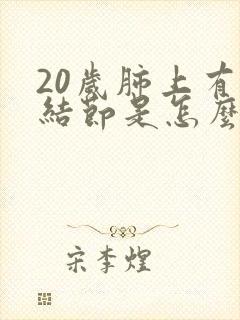 20歲肺上有
結節是怎麼
宋李煌